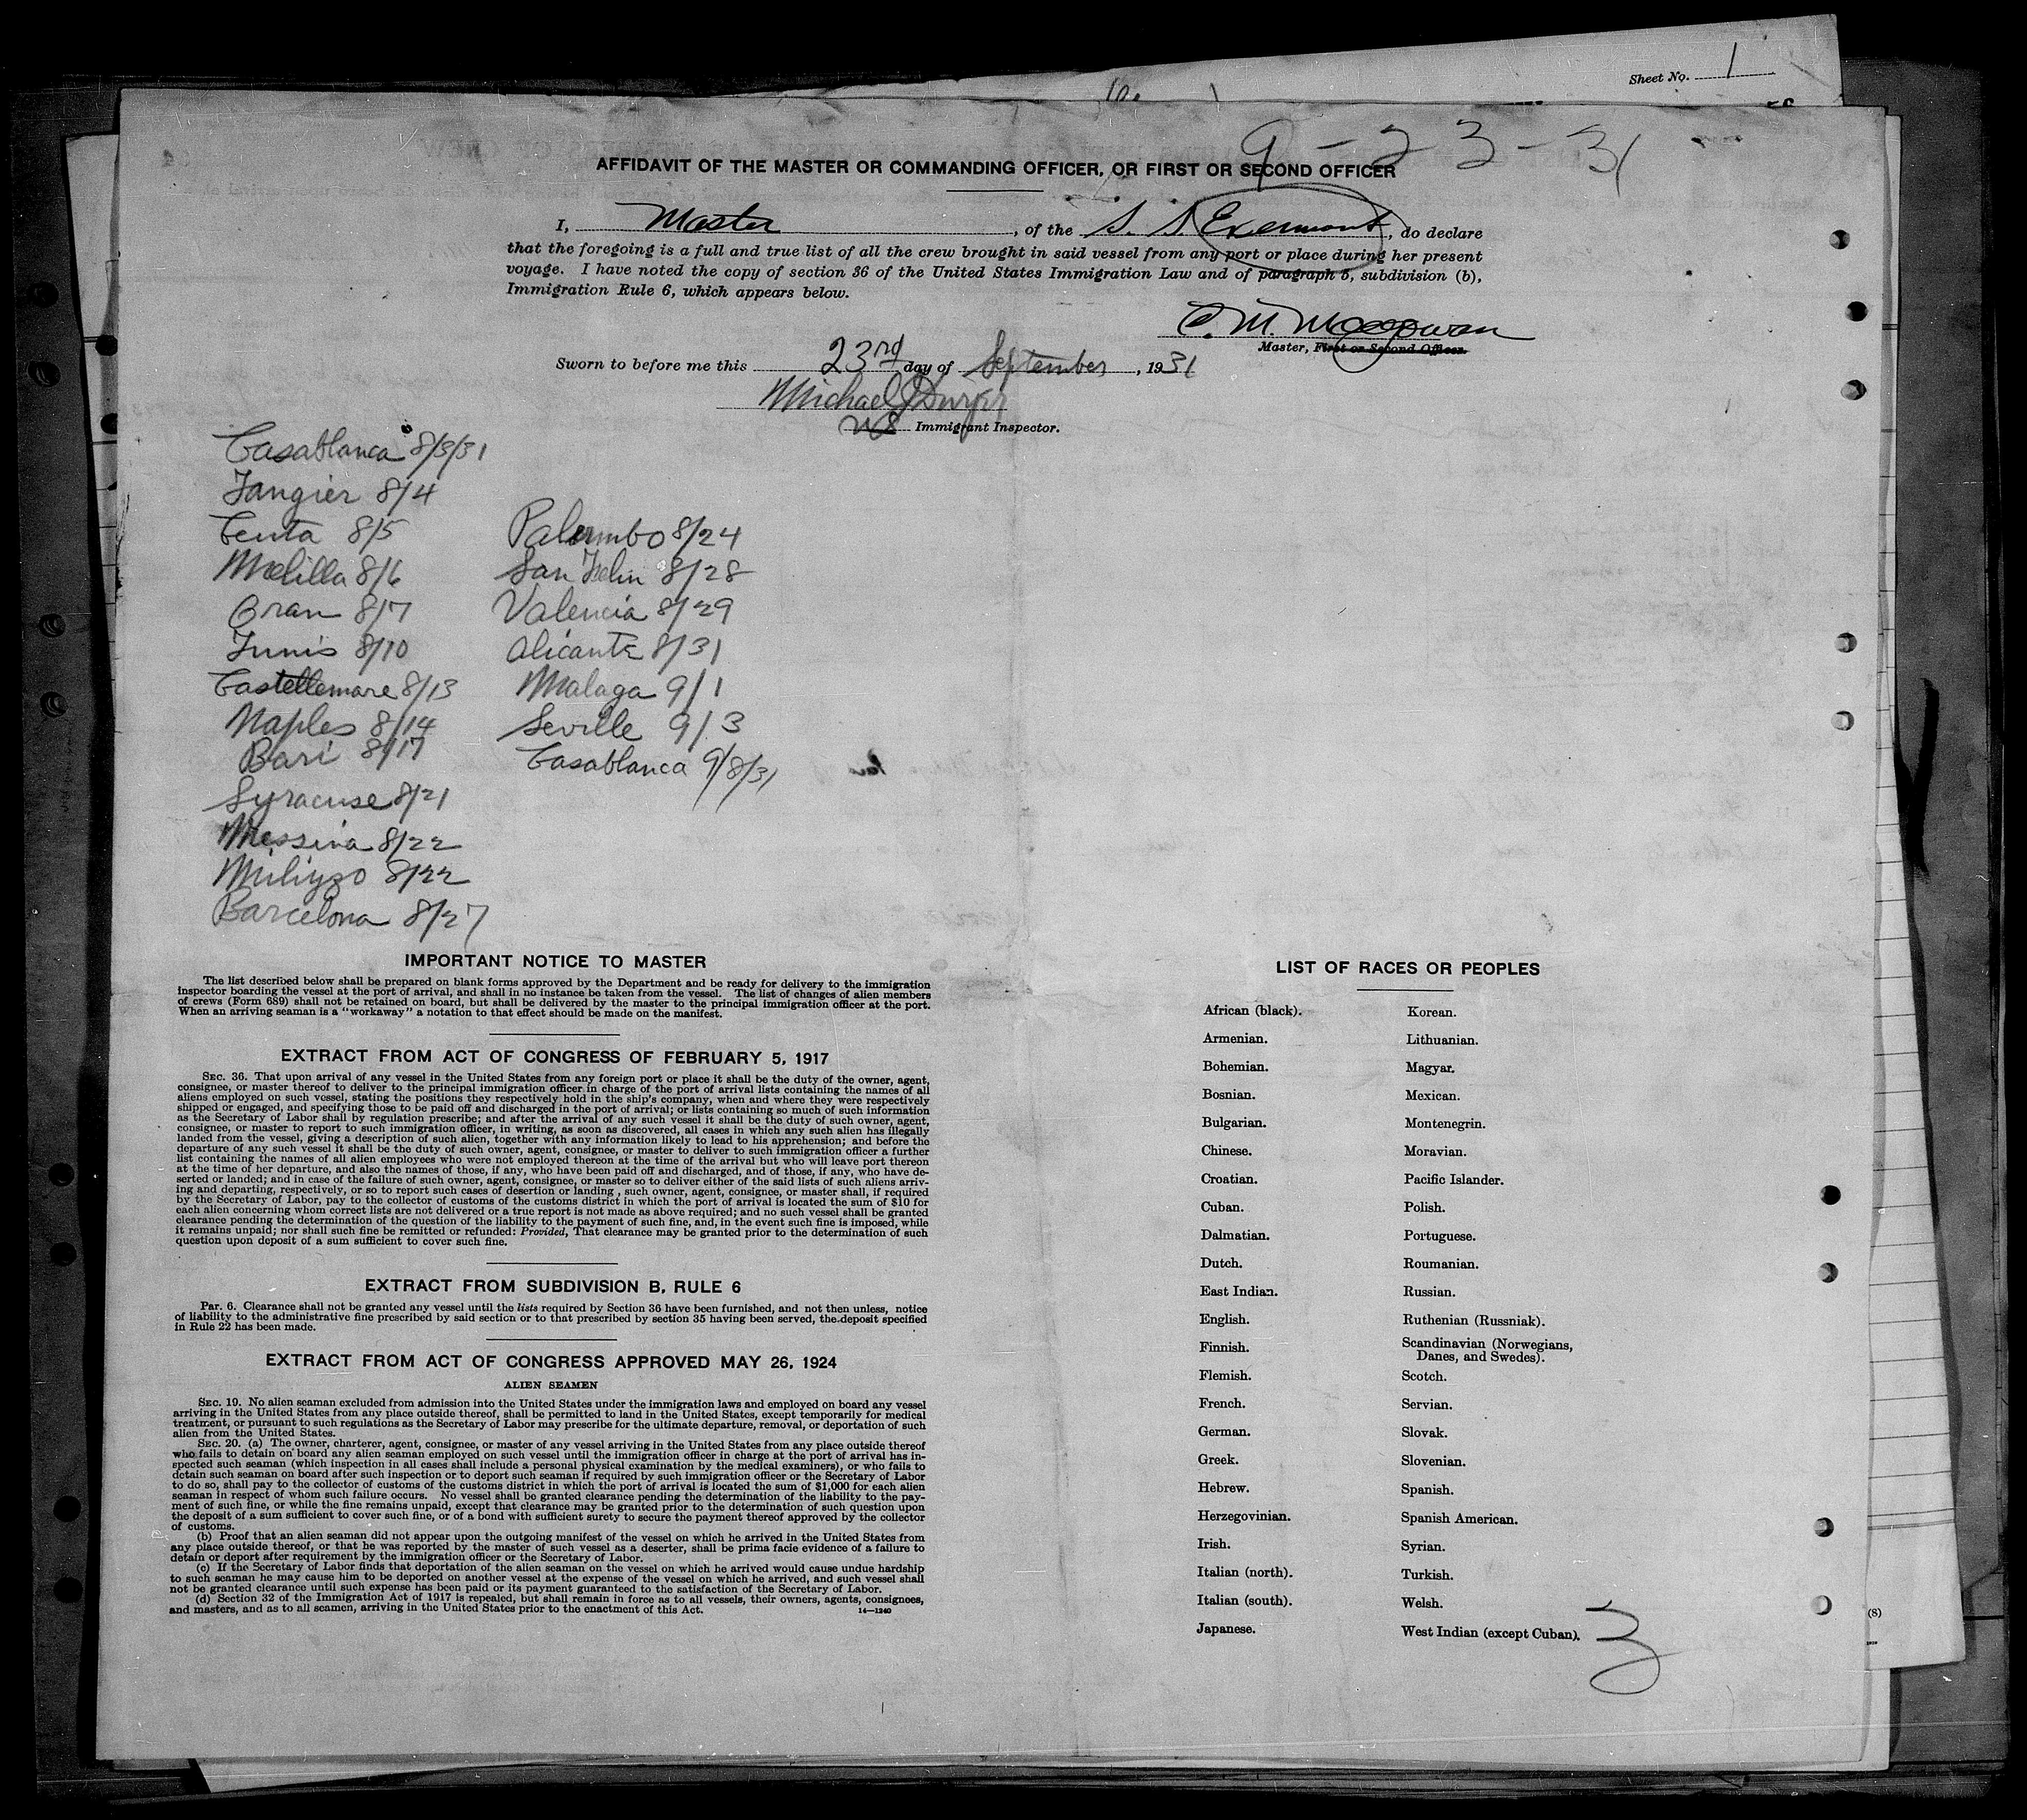 Sheet No. 1
9-23-31
AFFIDAVIT OF THE MASTER OR COMMANDING OFFICER, OR FIRST OR SECOND OFFICER
I, Master, of the S. S. Exermont, do declare
that the foregoing is a full and true list of all the crew brought in said vessel from any port or place during her present
voyage. I have noted the copy of section 36 of the United States Immigration Law and of paragraph 6, subdivision (b),
Immigration Rule 6, which appears below.
Master, First or Second Officer.
Sworn to before me this 23rd day of September, 1931
Michael J Dwyer
Immigrant Inspector.
Casablanca 8/3/31
Tangier 8/4
Ceuta 8/5
Melilla 8/6
Oran 8/7
Tunis 8/10
Castellemare 8/13
Naples 8/14
Bari 8/17
Syracuse 8/21
Messina 8/22
8/22
Barcelona 8/27
8/24
San 8/28
Valencia 8/29
Alicante 8/31
Malaga 9/1
Seville 9/3
Casablanca 9/8/31
IMPORTANT NOTICE TO MASTER
The list described below shall be prepared on blank forms approved by the Department and be ready for delivery to the immigration
inspector boarding the vessel at the port of arrival, and shall in no instance be taken from the vessel. The list of changes of alien members
of crews (Form 689) shall not be retained on board, but shall be delivered by the master to the principal immigration officer at the port.
When an arriving seaman is a "workaway" a notation to that effect should be made on the manifest.
EXTRACT FROM ACT OF CONGRESS OF FEBRUARY 5, 1917
SEC. 36. That upon arrival of any vessel in the United States from any foreign port or place it shall be the duty of the owner, agent,
consignee, or master thereof to deliver to the principal immigration officer in charge of the port of arrival lists containing the names of all
aliens employed on such vessel, stating the positions they respectively hold in the ship's company, when and where they were respectively
shipped or engaged, and specifying those to be paid off and discharged in the port of arrival; or lists containing so much of such information
as the Secretary of Labor shall by regulation prescribe; and after the arrival of any such vessel it shall be the duty of such owner, agent,
consignee, or master to report to such immigration officer, in writing, as soon as discovered, all cases in which any such alien has illegally
landed from the vessel, giving a description of such alien, together with any information likely to lead to his apprehension; and before the
departure of any such vessel it shall be the duty of such owner, agent, consignee, or master to deliver to such immigration officer a further
list containing the names of all alien employees who were not employed thereon at the time of the arrival but who will leave port thereon
at the time of her departure, and also the names of those, if any, who have been paid off and discharged, and of those, if any, who have de-
serted or landed; and in case of the failure of such owner, agent, consignee, or master so to deliver either of the said lists of such aliens arriv-
ing and departing, respectively, or so to report such cases of desertion or landing, such owner, agent, consignee, or master shall, if required
by the Secretary of Labor, pay to the collector of customs of the customs district in which the port of arrival is located the sum of $10 for
each alien concerning whom correct lists are not delivered or a true report is not made as above required; and no such vessel shall be granted
clearance pending the determination of the question of the liability to the payment of such fine, and, in the event such fine is imposed, while
it remains unpaid; nor shall such fine be remitted or refunded: Provided, That clearance may be granted prior to the determination of such
question upon deposit of a sum sufficient to cover such fine.
EXTRACT FROM SUBDIVISION B, RULE 6
Par. 6. Clearance shall not be granted any vessel until the lists required by Section 36 have been furnished, and not then unless, notice
of liability to the administrative fine prescribed by said section or to that prescribed by section 35 having been served, the deposit specified
in Rule 22 has been made.
EXTRACT FROM ACT OF CONGRESS APPROVED MAY 26, 1924
ALIEN SEAMEN
SEC. 19. No alien seaman excluded from admission into the United States under the immigration laws and employed on board any vessel
arriving in the United States from any place outside thereof, shall be permitted to land in the United States, except temporarily for medical
treatment, or pursuant to such regulations as the Secretary of Labor may prescribe for the ultimate departure, removal, or deportation of such
alien from the United States.
SEC. 20. (a) The owner, charterer, agent, consignee, or master of any vessel arriving in the United States from any place outside thereof
who fails to detain on board any alien seaman employed on such vessel until the immigration officer in charge at the port of arrival has in-
spected such seaman (which inspection in all cases shall include a personal physical examination by the medical examiners), or who fails to
detain such seaman on board after such inspection or to deport such seaman if required by such immigration officer or the Secretary of Labor
to do so, shall pay to the collector of customs of the customs district in which the port of arrival is located the sum of $1,000 for each alien
seaman in respect of whom such failure occurs. No vessel shall be granted clearance pending the determination of the liability to the pay-
ment of such fine, or while the fine remains unpaid, except that clearance may be granted prior to the determination of such question upon
the deposit of a sum sufficient to cover such fine, or of a bond with sufficient surety to secure the payment thereof approved by the collector
of customs.
(b) Proof that an alien seaman did not appear upon the outgoing manifest of the vessel on which he arrived in the United States from
any place outside thereof, or that he was reported by the master of such vessel as a deserter, shall be prima facie evidence of a failure to
detain or deport after requirement by the immigration officer or the Secretary of Labor.
(c) If the Secretary of Labor finds that deportation of the alien seaman on the vessel on which he arrived would cause undue hardship
to such seaman he may cause him to be deported on another vessel at the expense of the vessel on which he arrived, and such vessel shall
not be granted clearance until such expense has been paid or its payment guaranteed to the satisfaction of the Secretary of Labor.
(d) Section 32 of the Immigration Act of 1917 is repealed, but shall remain in force as to all vessels, their owners, agents, consignees,
and masters, and as to all seamen, arriving in the United States prior to the enactment of this Act.
14—1240
LIST OF RACES OR PEOPLES
African (black).
Armenian.
Bohemian.
Bosnian.
Bulgarian.
Chinese.
Croatian.
Cuban.
Dalmatian.
Dutch.
East Indian.
English.
Finnish.
Flemish.
French.
German.
Greek.
Hebrew.
Herzegovinian.
Irish.
Italian (north).
Italian (south).
Japanese.
Korean.
Lithuanian.
Magyar.
Mexican.
Montenegrin.
Moravian.
Pacific Islander.
Polish.
Portuguese.
Roumanian.
Russian.
Ruthenian (Russniak).
Scandinavian (Norwegians,
Danes, and Swedes).
Scotch.
Servian.
Slovak.
Slovenian.
Spanish.
Spanish American.
Syrian.
Turkish.
Welsh.
West Indian (except Cuban).
3
(8)